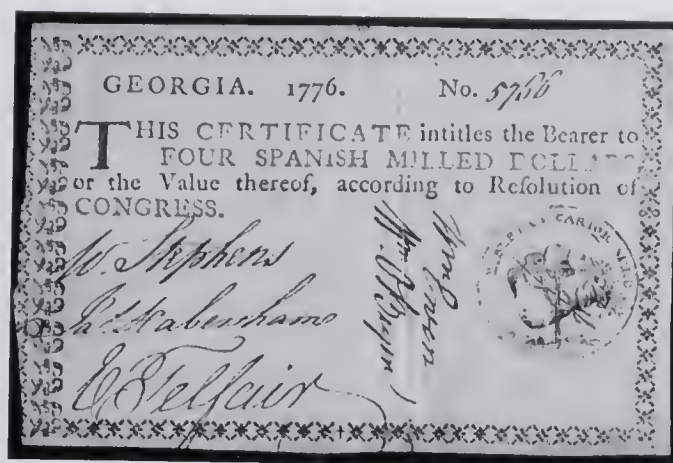 GEORGIA. 1776. No. 5766
THIS CERTIFICATE intitles the Bearer to
FOUR SPANISH MILLED DOLLARS
or the Value thereof, according to Reſolution of
CONGRESS.
W. Stephens
Habersham
E Telfair